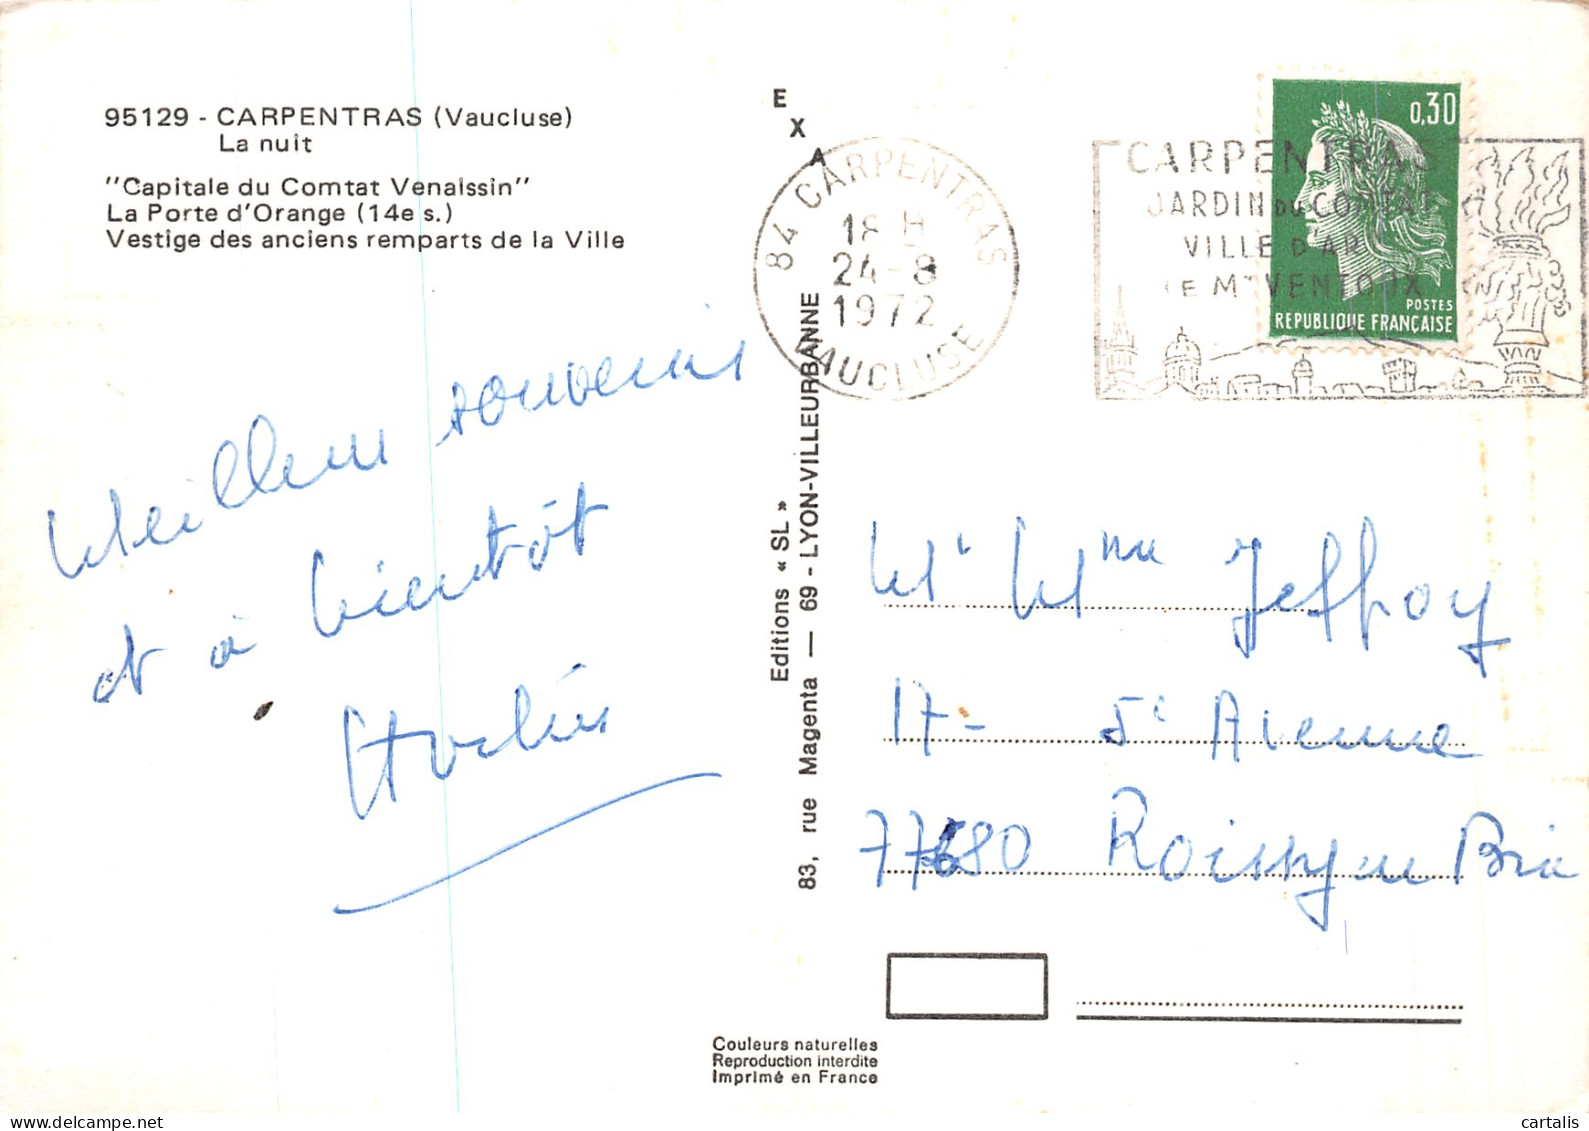 95129 - CARPENTRAS (Vaucluse)
La nuit
"Capitale du Comtat Venaissin"
La Porte d'Orange (14e s.)
Vestige des anciens remparts de la Ville
Meilleurs souvenirs
et à bientôt
EXA
Editions « SL »
83, rue Magenta — 69 - LYON-VILLEURBANNE
84 CARPENTRAS
18 H
24-8
1972
VAUCLUSE
CARPENTRAS
JARDIN DU COMTAT
VILLE D'ART
LE MT VENTOUX
0,30
POSTES
REPUBLIQUE FRANÇAISE
Mr Mme Jeffroy
17 - 5e Avenue
77680 Roissy en Brie
Couleurs naturelles
Reproduction interdite
Imprimé en France
cartalis